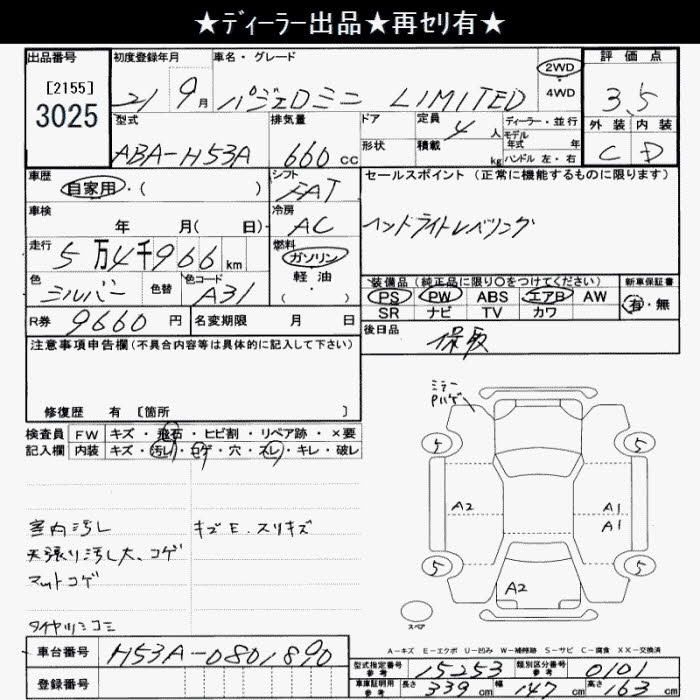 ★ディーラー出品★再セリ有★
出品番号 初度登録年月 車名・グレード 評価点
[2155] 3025 21 9月 パジェロミニ LIMITED 2WD 4WD 3.5
型式 排気量 ドア 定員 4人 ディーラー・並行 外装 内装
ABA-H53A 660cc 形状 積載 kg モデル年式 年 ハンドル 左・右 C D
車歴 シフト セールスポイント (正常に機能するものに限ります)
自家用・( ) FAT
車検 冷房 ヘッドライトレベリング
年 月( 日) AC
走行 5万4千966km 燃料 ガソリン
色 シルバー 色替 色コード A31 軽油・( )
装備品 (純正品に限り○をつけてください) 新車保証書
PS PW ABS エアB AW 有・無
SR ナビ TV カワ
R券 9660円 名変期限 月 日 後日品 保取
注意事項申告欄(不具合内容等は具体的に記入して下さい)
修復歴 有 [箇所 ]
検査員 FW キズ・飛石・ヒビ割・リペア跡・×要
記入欄 内装 キズ・汚レ・コゲ・穴・スレ・キレ・破レ
ミラー
Pハゲ
5 5
A2 A1
A1
5 5
A2
スペア
室内汚レ キズE.スリキズ
天張り汚し大、コゲ
マットコゲ
タイヤツミコミ
A-キズ E-エクボ U-凹み W-補修跡 S-サビ C-腐食 XX-交換済
車台番号 H53A-0801890
登録番号
型式指定番号 参考 15253 類別区分番号 参考 0101
車庫証明用 参考 長さ 339cm 幅 147cm 高さ 163cm